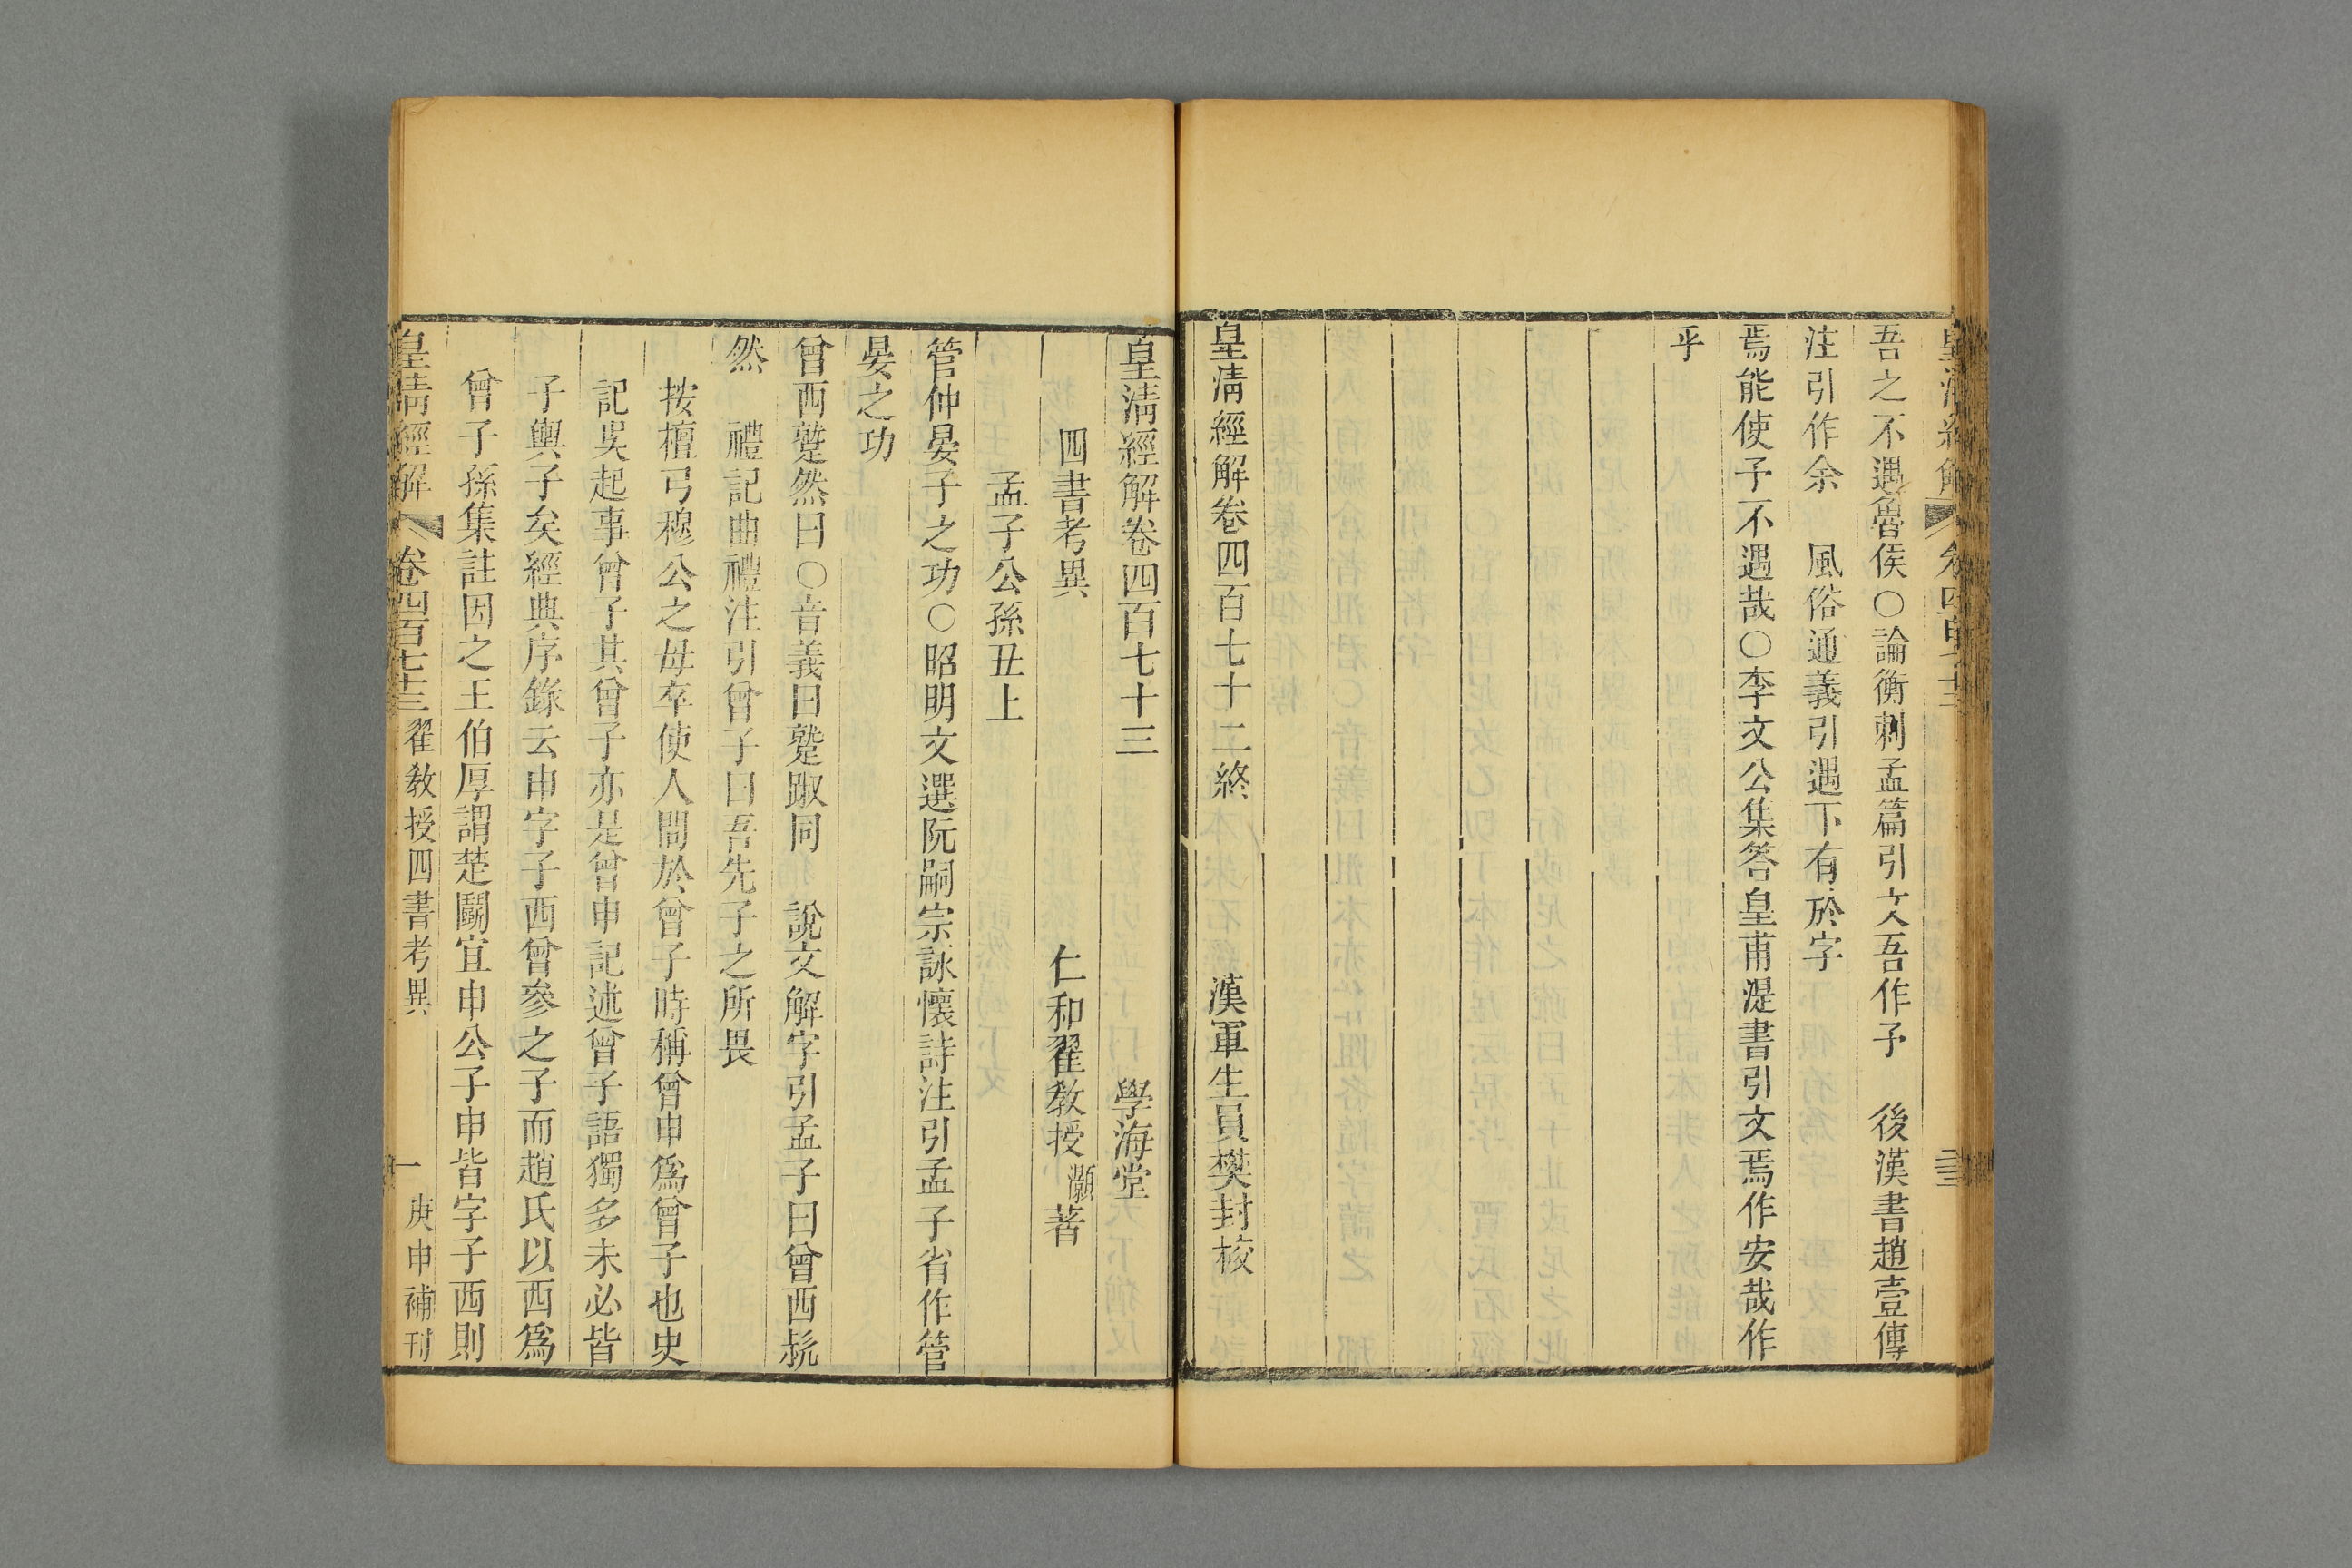 吾之不遇魯侯〇論衡刺孟篇引文吾作予　後漢書趙壹傳
注引作余　風俗通義引遇下有於字
焉能使予不遇哉〇李文公集答皇甫湜書引文焉作安哉作
乎
皇清經解卷四百七十二終　漢軍生員樊封校
皇清經解卷四百七十三　學海堂
四書考異　仁和翟教授灝著
孟子公孫丑上
管仲晏子之功〇昭明文選阮嗣宗詠懷詩注引孟子省作管
晏之功
曾西蹵然曰〇音義曰蹵踧同　說文解字引孟子曰曾西
然　禮記曲禮注引曾子曰吾先子之所畏
按檀弓穆公之母卒使人問於曾子時稱曾申爲曾子也史
記吳起事曾子其曾子亦是曾申記述曾子語獨多未必皆
子輿子矣經典序錄云申字子西曾參之子而趙氏以西爲
曾子孫集註因之王伯厚謂楚鬬宜申公子申皆字子西則
皇清經解　卷四百七十三　翟教授四書考異　一　庚申補刊